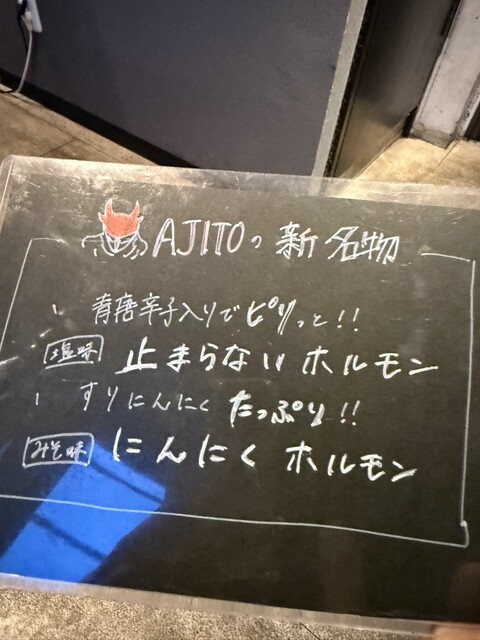 AJITOの新名物
、青唐辛子入りでピリっと!!
塩味 止まらないホルモン
、すりにんにくたっぷり!!
みそ味 にんにくホルモン